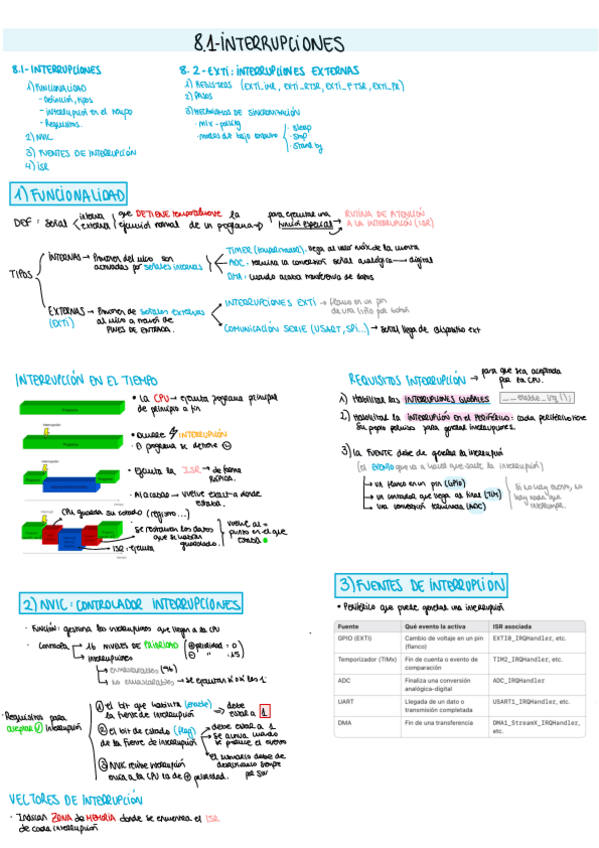 8.1-INTERRUPCIONES
8.1- INTERRUPCIONES
1) FUNCIONALIDAD
- Definición, tipos
- interrupción en el tiempo
- Requisitos
2) NVIC
3) FUENTES DE INTERRUPCIÓN
4) ISR
8.2-EXTI: INTERRUPCIONES EXTERNAS
1) REGISTROS (EXTI_IMR, EXTI_RTSR, EXTI_FTSR, EXTI_PR)
2) PASOS
3) MECANISMOS DE SINCRONIZACIÓN
- mix-polling
- modos de bajo consumo
· Sleep
· Stop
· Stand by
1) FUNCIONALIDAD
DEF: señal interna externa que DETIENE temporalmente la ejecución normal de un programa → para ejecutar una función especial → RUTINA DE ATENCIÓN A LA INTERRUPCIÓN (ISR)
TIPOS
INTERNAS → Provienen del micro son activadas por señales internas
TIMER (temporizador). llega al valor máx de la cuenta
ADC. termina la conversión señal analógica → digital
DMA. cuando acaba transferencia de datos
EXTERNAS → Provienen de señales externas al micro a través de PINES DE ENTRADA.
(EXTI)
INTERRUPCIONES EXTI → flanco en un pin
COMUNICACIÓN SERIE (USART, SPI...) → señal llega de dispositivo ext
INTERRUPCIÓN EN EL TIEMPO
• La CPU → ejecuta programa principal de principio a fin
• Ocurre INTERRUPCIÓN
• El programa se detiene
• Ejecuta la ISR → de forma RÁPIDA.
• Al acabar → vuelve exact. a donde estaba
CPU guarda su estado (registros...)
Se restauran los datos que se habían guardado.
vuelve al = punto en el que estaba
ISR: ejecuta
REQUISITOS INTERRUPCIÓN → para que sea aceptada por la CPU.
1) Habilitar las INTERRUPCIONES GLOBALES __enable_irq();
2) Habilitar la INTERRUPCIÓN EN EL PERIFÉRICO: cada periférico tiene su propio permiso para generar interrupciones.
3) La FUENTE debe de generar la interrupción
(el EVENTO que va a hacer que salte la interrupción)
→ un flanco en un pin (GPIO)
→ un contador que llega al final (TIM)
→ una conversión terminada (ADC)
Si no hay evento, no hay nada que interrumpir.
2) NVIC: CONTROLADOR INTERRUPCIONES
· Función: gestiona las interrupciones que llegan a la CPU
· Controla → 16 NIVELES DE PRIORIDAD (⊕prioridad = 0)
(⊖ " = 15)
→ interrupciones
→ enmascarables (96)
→ no enmascarables → se ejecutan sí o sí
· Requisitos para aceptar interrupción
① el bit que habilita (enable) la fuente de interrupción → debe estar a 1
② el bit de estado (flag) de la fuente de interrupción
debe estar a 1
Se activa cuando se produce el evento
El usuario debe de desactivarlo siempre por SW
③ NVIC recibe interrupción envía a la CPU la de ⊕ prioridad.
VECTORES DE INTERRUPCIÓN
· Indican ZONA de MEMORIA donde se encuentra el ISR de cada interrupción
3) FUENTES DE INTERRUPCIÓN
• Periférico que puede generar una interrupción
Fuente Qué evento la activa ISR asociada
GPIO (EXTI) Cambio de voltaje en un pin (flanco) EXTI0_IRQHandler, etc.
Temporizador (TIMx) Fin de cuenta o evento de comparación TIM2_IRQHandler, etc.
ADC Finaliza una conversión analógica-digital ADC_IRQHandler
UART Llegada de un dato o transmisión completada USART1_IRQHandler, etc.
DMA Fin de una transferencia DMA1_StreamX_IRQHandler, etc.